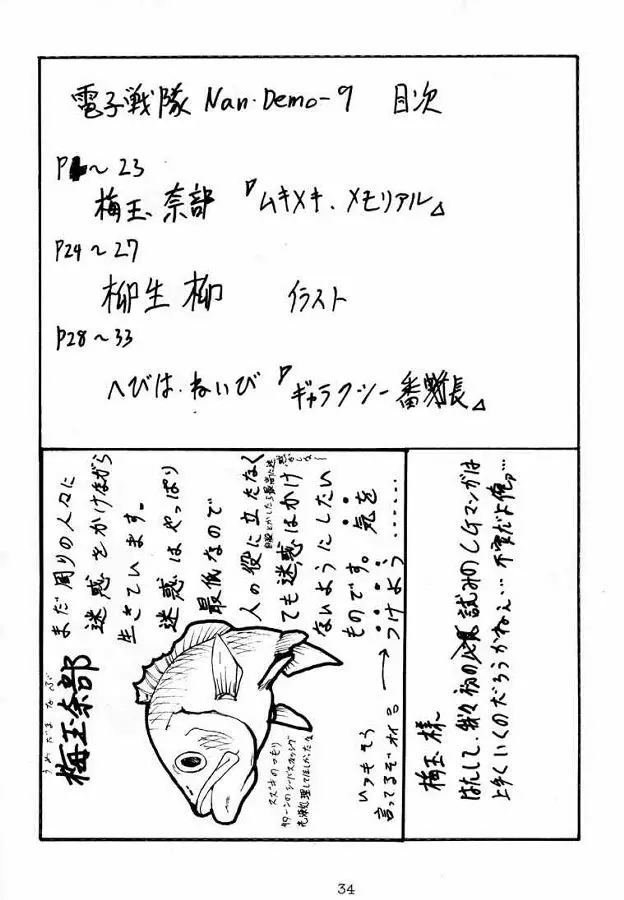 電子戦隊 Nan・Demo-9 目次
P4～23
梅玉奈部 『ムキメキ・メモリアル』
P24～27
柳生柳 イラスト
P28～33
へびは・ねいび 『ギャラクシー番長』
梅玉 様
はたして、我々初の試みのCGマンガは
上手くいくのだろうかねぇ…不安だよ俺ァ…
まだ周りの人々に
迷惑をかけながら
生きています。
迷惑はやっぱり
最低なので
人の役に立たなく
ても迷惑はかけ
ないようにしたい
ものです。気を
つけよう……
→いつもそう
言ってるぞオイ
うめだまなぶ
梅玉奈部
スズキのつもり
34